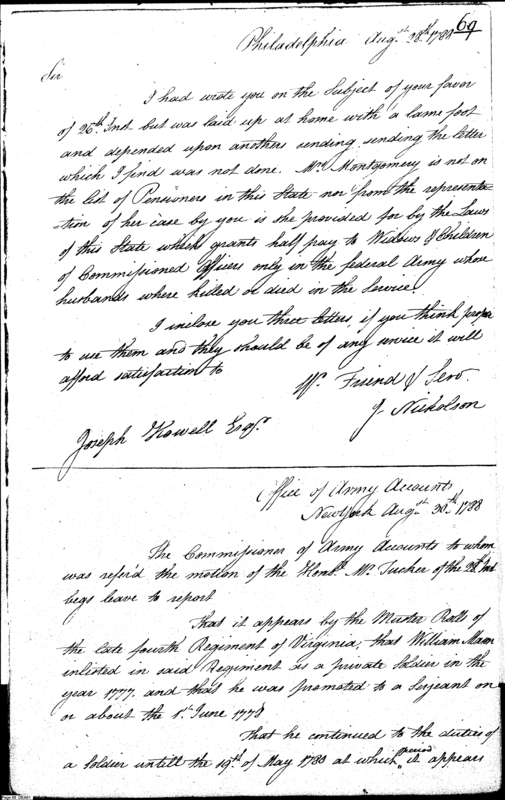 69
Philadelphia Augt. 28th. 1788
Sir
I had wrote you on the Subject of your favor
of 26th. Inst. but was laid up at home with a lame foot
and depended upon anothers sending sending the letter
which I find was not done. Mrs. Montgomery is not on
the list of Pensioners in this State nor from the representa-
-tion of her case by you is she provided for by the Laws
of this State which grants half pay to Widows & Children
of Commissioned Officers only in the federal Army whose
husbands where killed or died in the Service.
I inclose you three letters, if you think proper
to use them and they should be of any service it will
afford satisfaction to
Yr. Friend & Serv.
J Nicholson
Joseph Howell Esqr.
Office of Army Accounts
New York Augt. 30th. 1788
The Commissioner of Army Accounts to whom
was refer'd the motion of the Honble. Mr. Tucker of the 28th Inst
begs leave to report
That it appears by the Muster Rolls of
the late fourth Regiment of Virginia, that William Mann
inlisted in said Regiment as a private Soldier in the
year 1777. and that he was promoted to a Serjeant on
or about the 1st. June 1778
That he continued to the duties of
a Soldier untill the 19th. of May 1783 at which period it appears